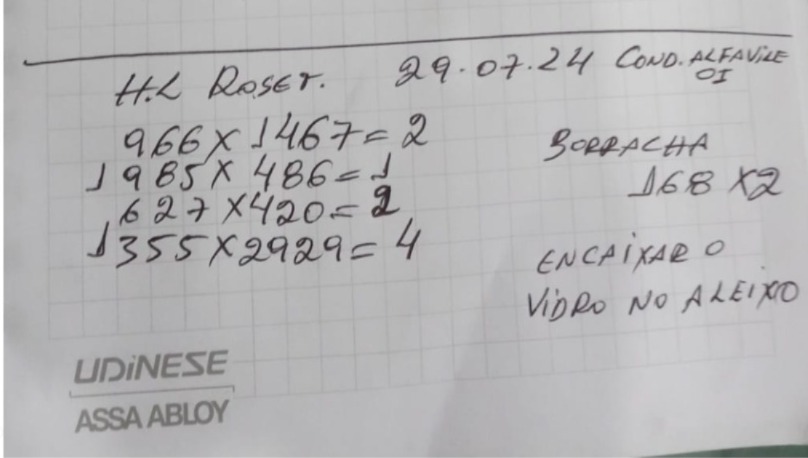 H.L ROSET. 29.07.24 COND. ALFAVILE
OI
966 X 1467 = 2
1985 X 486 = 1
627 X 420 = 2
1355 X 2929 = 4
BORRACHA
168 X2
ENCAIXAR O
VIDRO NO ALEIXO
UDiNESE
ASSA ABLOY